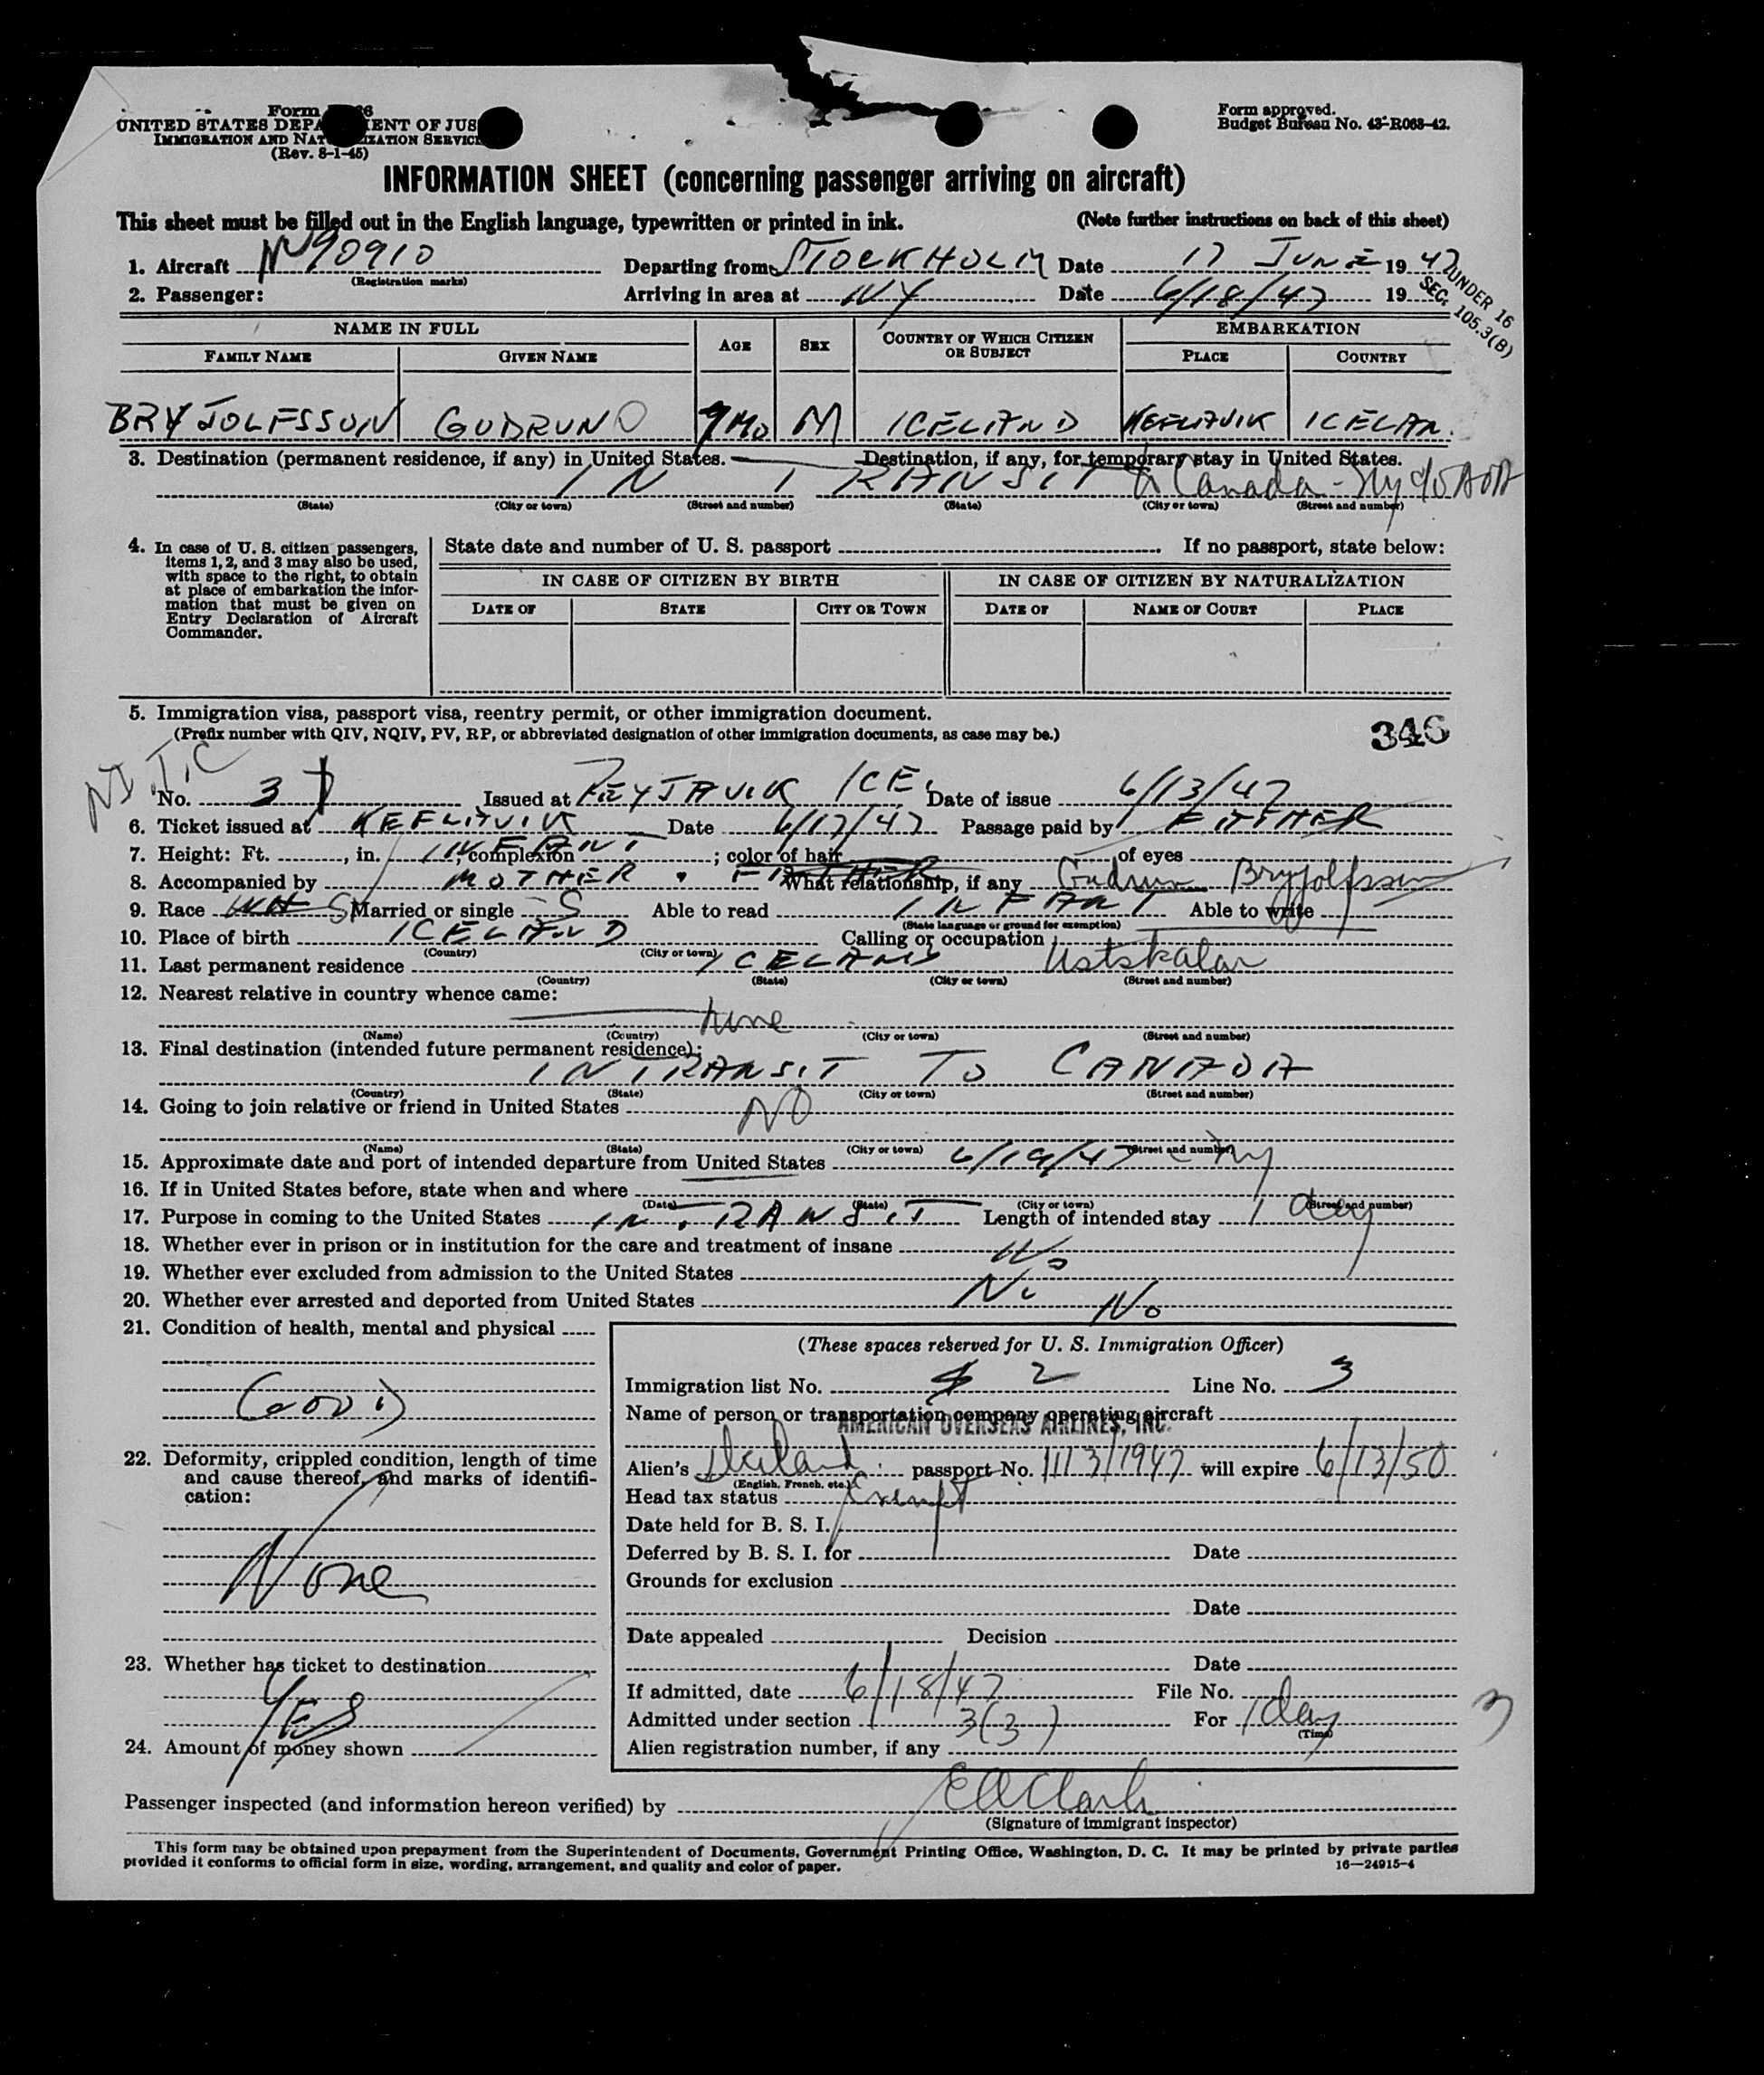 Form
UNITED STATES DEPA ENT OF JUS
IMMIGRATION AND NAT IZATION SERVIC
(Rev. 8-1-45)
Form approved.
Budget Bureau No. 43-R063-42.
INFORMATION SHEET (concerning passenger arriving on aircraft)
This sheet must be filled out in the English language, typewritten or printed in ink. (Note further instructions on back of this sheet)
1. Aircraft N 90910 Departing from STOCKHOLM Date 17 JUNE 19 47
(Registration marks)
2. Passenger: Arriving in area at NY Date 6/18/47 19
UNDER 16
SEC. 105.3(B)
NAME IN FULL AGE SEX COUNTRY OF WHICH CITIZEN OR SUBJECT EMBARKATION
FAMILY NAME GIVEN NAME PLACE COUNTRY
BRYJOLFSSON GUDRUN 9 MO M ICELAND KEFLAVIK ICELAN.
3. Destination (permanent residence, if any) in United States. Destination, if any, for temporary stay in United States.
IN TRANSIT to Canada - Ny c/o AOA
(State) (City or town) (Street and number) (State) (City or town) (Street and number)
4. In case of U. S. citizen passengers, items 1, 2, and 3 may also be used, with space to the right, to obtain at place of embarkation the information that must be given on Entry Declaration of Aircraft Commander.
State date and number of U. S. passport . If no passport, state below:
IN CASE OF CITIZEN BY BIRTH IN CASE OF CITIZEN BY NATURALIZATION
DATE OF STATE CITY OR TOWN DATE OF NAME OF COURT PLACE
5. Immigration visa, passport visa, reentry permit, or other immigration document.
(Prefix number with QIV, NQIV, PV, RP, or abbreviated designation of other immigration documents, as case may be.)
346
No. 3 Issued at REYJAVIK ICE. Date of issue 6/13/47
6. Ticket issued at KEFLAVIK Date 6/17/47 Passage paid by FATHER
7. Height: Ft. , in. INFANT ; complexion ; color of hair of eyes
8. Accompanied by MOTHER . FATHER What relationship, if any Gudrun Bryjolfsson
9. Race WH Married or single S Able to read INFANT Able to write
(State language or ground for exemption)
10. Place of birth ICELAND Calling or occupation
(Country) (City or town)
11. Last permanent residence ICELAND Ustskalar
(Country) (State) (City or town) (Street and number)
12. Nearest relative in country whence came:
none
(Name) (Country) (City or town) (Street and number)
13. Final destination (intended future permanent residence):
IN TRANSIT TO CANADA
(Country) (State) (City or town) (Street and number)
14. Going to join relative or friend in United States NO
(Name) (State) (City or town) (Street and number)
15. Approximate date and port of intended departure from United States 6/19/47 Ny
16. If in United States before, state when and where
(Date) (State) (City or town) (Street and number)
17. Purpose in coming to the United States IN TRANSIT Length of intended stay 1 day
18. Whether ever in prison or in institution for the care and treatment of insane No
19. Whether ever excluded from admission to the United States No
20. Whether ever arrested and deported from United States No
21. Condition of health, mental and physical
GOOD
22. Deformity, crippled condition, length of time and cause thereof, and marks of identification:
None
23. Whether has ticket to destination
YES
24. Amount of money shown
(These spaces reserved for U. S. Immigration Officer)
Immigration list No. 2 Line No. 3
Name of person or transportation company operating aircraft
AMERICAN OVERSEAS AIRLINES, INC.
Alien's Iceland passport No. 113/1947 will expire 6/13/50
(English, French, etc.)
Head tax status Exempt
Date held for B. S. I.
Deferred by B. S. I. for Date
Grounds for exclusion
Date
Date appealed Decision
Date
If admitted, date 6/18/47 File No.
Admitted under section 3(3) For 1 day
(Time)
3
Alien registration number, if any
Passenger inspected (and information hereon verified) by EAClark
(Signature of immigrant inspector)
This form may be obtained upon prepayment from the Superintendent of Documents, Government Printing Office, Washington, D. C. It may be printed by private parties
provided it conforms to official form in size, wording, arrangement, and quality and color of paper. 16—24915-4